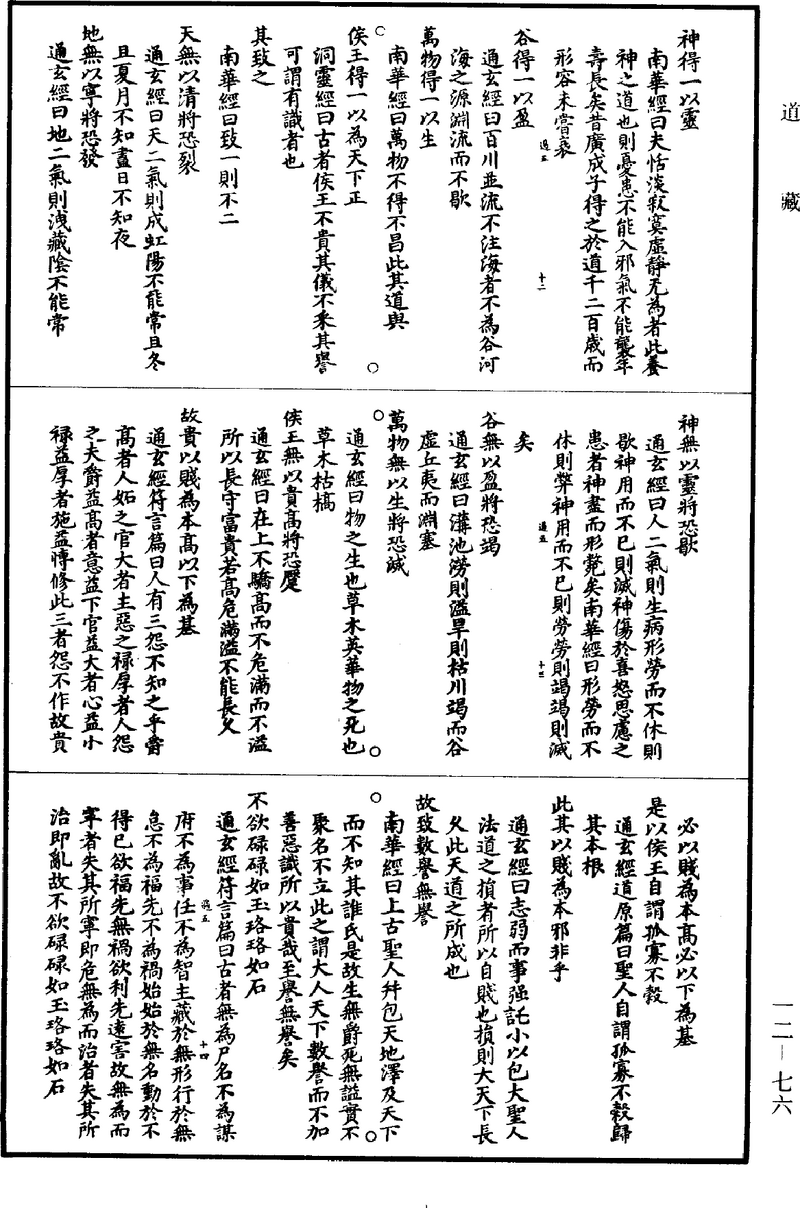 道藏
神得一以靈
南華經曰夫恬淡寂寞虛靜无為者此養
神之道也則憂患不能入邪氣不能襲年
壽長矣昔廣成子得之於道千二百歲而
形容未嘗衰
過五
十二
谷得一以盈
通玄經曰百川並流不注海者不為谷河
海之源淵流而不歇
萬物得一以生
南華經曰萬物不得不昌此其道與
侯王得一以為天下正
洞靈經曰古者侯王不貴其儀不采其譽
可謂有識者也
其致之
南華經曰致一則不二
天無以清將恐裂
通玄經曰天二氣則成虹陽不能常且冬
且夏月不知晝日不知夜
地無以寧將恐發
通玄經曰地二氣則洩藏陰不能常
神無以靈將恐歇
通玄經曰人二氣則生病形勞而不休則
歇神用而不已則滅神傷於喜怒思慮之
患者神盡而形斃矣南華經曰形勞而不
休則弊神用而不已則勞勞則竭竭則滅
過五
十三
矣
谷無以盈將恐竭
通玄經曰溝池澇則溢旱則枯川竭而谷
虛丘夷而淵塞
萬物無以生將恐滅
通玄經曰物之生也草木英華物之死也
草木枯槁
侯王無以貴高將恐蹷
通玄經曰在上不驕高而不危滿而不溢
所以長守富貴若高危滿溢不能長久
故貴以賤為本高以下為基
通玄經符言篇曰人有三怨不知之乎爵
高者人妬之官大者主惡之祿厚者人怨
之夫爵益高者意益下官益大者心益小
祿益厚者施益愽修此三者怨不作故貴
必以賤為本高必以下為基
是以侯王自謂孤寡不穀
通玄經道原篇曰聖人自謂孤寡不穀歸
其本根
此其以賤為本邪非乎
通玄經曰志弱而事强託小以包大聖人
法道之損者所以自賤也損則大天下長
久此天道之所成也
故致數譽無譽
南華經曰上古聖人并包天地澤及天下
而不知其誰氏是故生無爵死無謚實不
聚名不立此之謂大人天下數譽而不加
善惡識所以貴哉至譽無譽矣
不欲碌碌如玉珞珞如石
通玄經符言篇曰古者無為尸名不為謀
府不為事任不為智主藏於無形行於無
過五
十四
怠不為福先不為禍始始於無名動於不
得已欲福先無禍欲利先遠害故無為而
寧者失其所寧即危無為而治者失其所
治即亂故不欲碌碌如玉珞珞如石
一二—七六